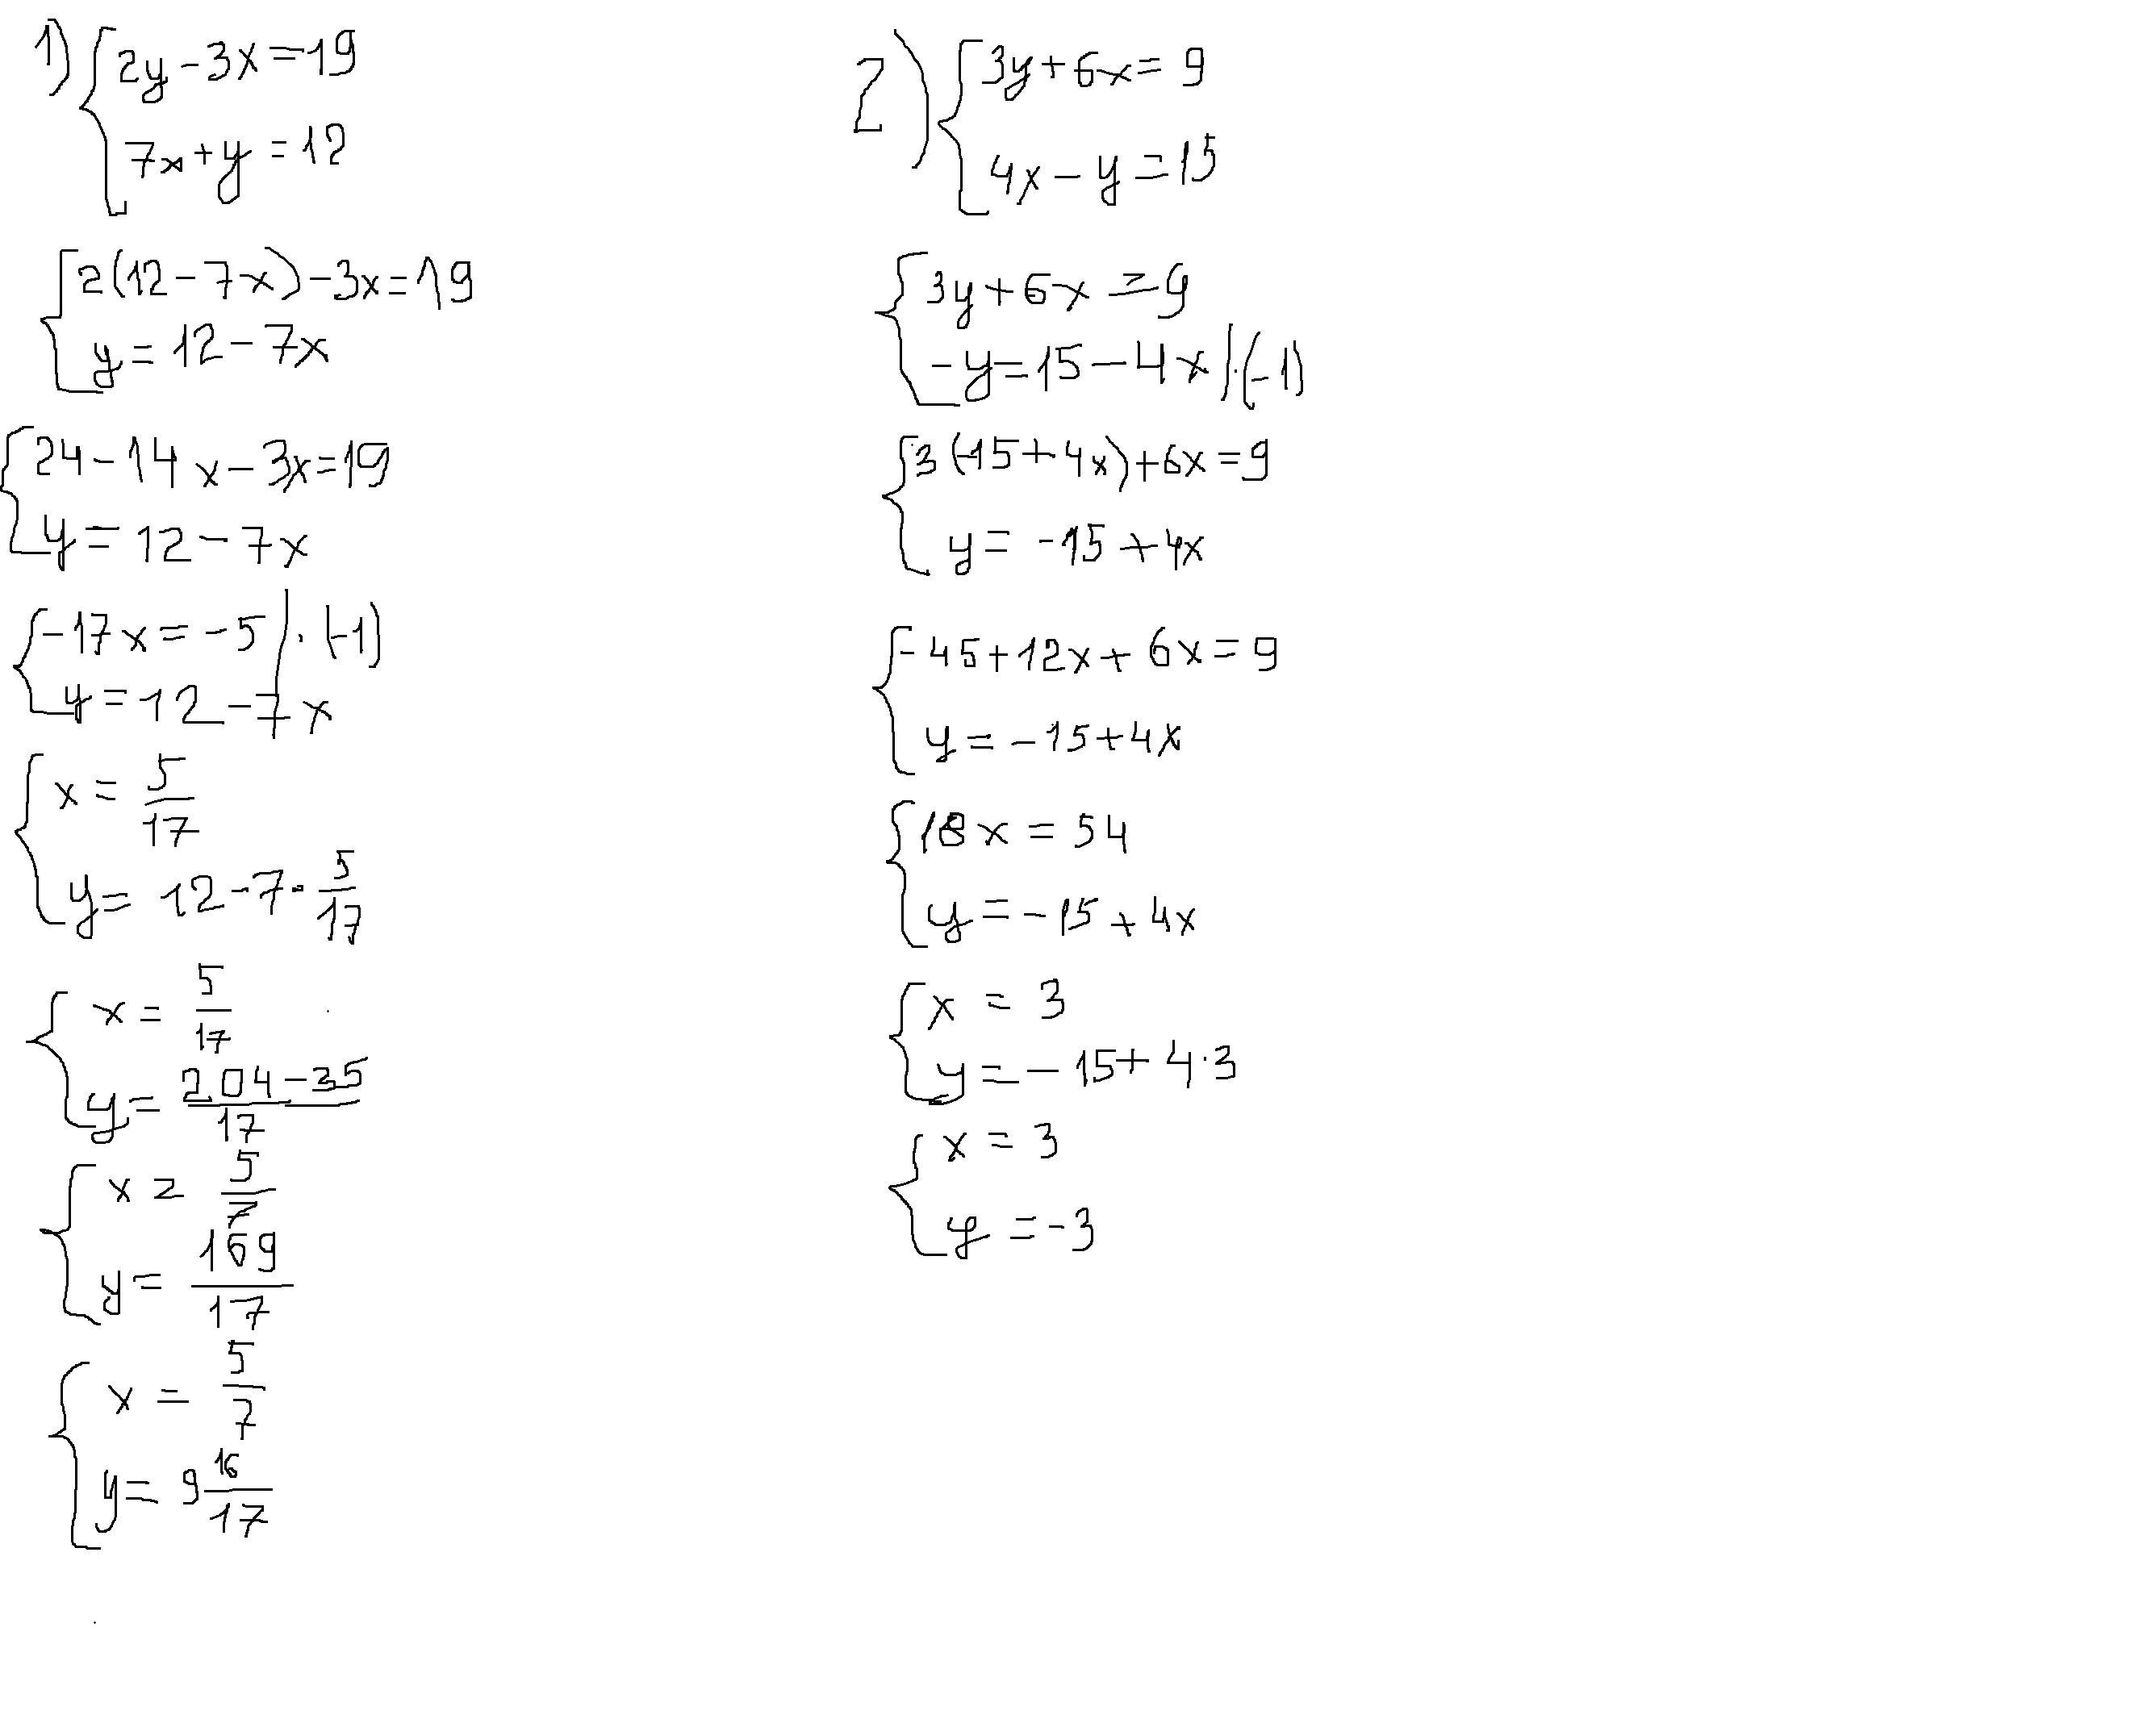 1) { 2y - 3x = 19
7x + y = 12
{ 2(12 - 7x) - 3x = 19
y = 12 - 7x
{ 24 - 14x - 3x = 19
y = 12 - 7x
{ -17x = -5 / · (-1)
y = 12 - 7x
{ x = 5/17
y = 12 - 7 · 5/17
{ x = 5/17
y = (204 - 35)/17
{ x = 5/7
y = 169/17
{ x = 5/7
y = 9 16/17
2) { 3y + 6x = 9
4x - y = 15
{ 3y + 6x = 9
-y = 15 - 4x / · (-1)
{ 3(-15 + 4x) + 6x = 9
y = -15 + 4x
{ -45 + 12x + 6x = 9
y = -15 + 4x
{ 18x = 54
y = -15 + 4x
{ x = 3
y = -15 + 4 · 3
{ x = 3
y = -3